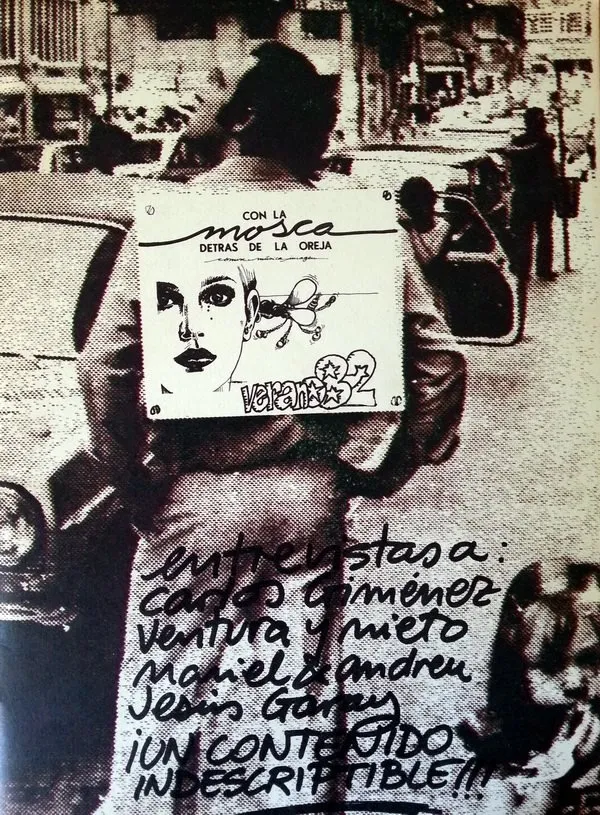 CON LA
mosca
DETRAS DE LA OREJA
comix música imagen
verano 82
entrevistas a:
carlos Giménez
ventura y nieto
Mariel & andreu
Jesús Garay
¡UN CONTENIDO
INDESCRIPTIBLE!!!